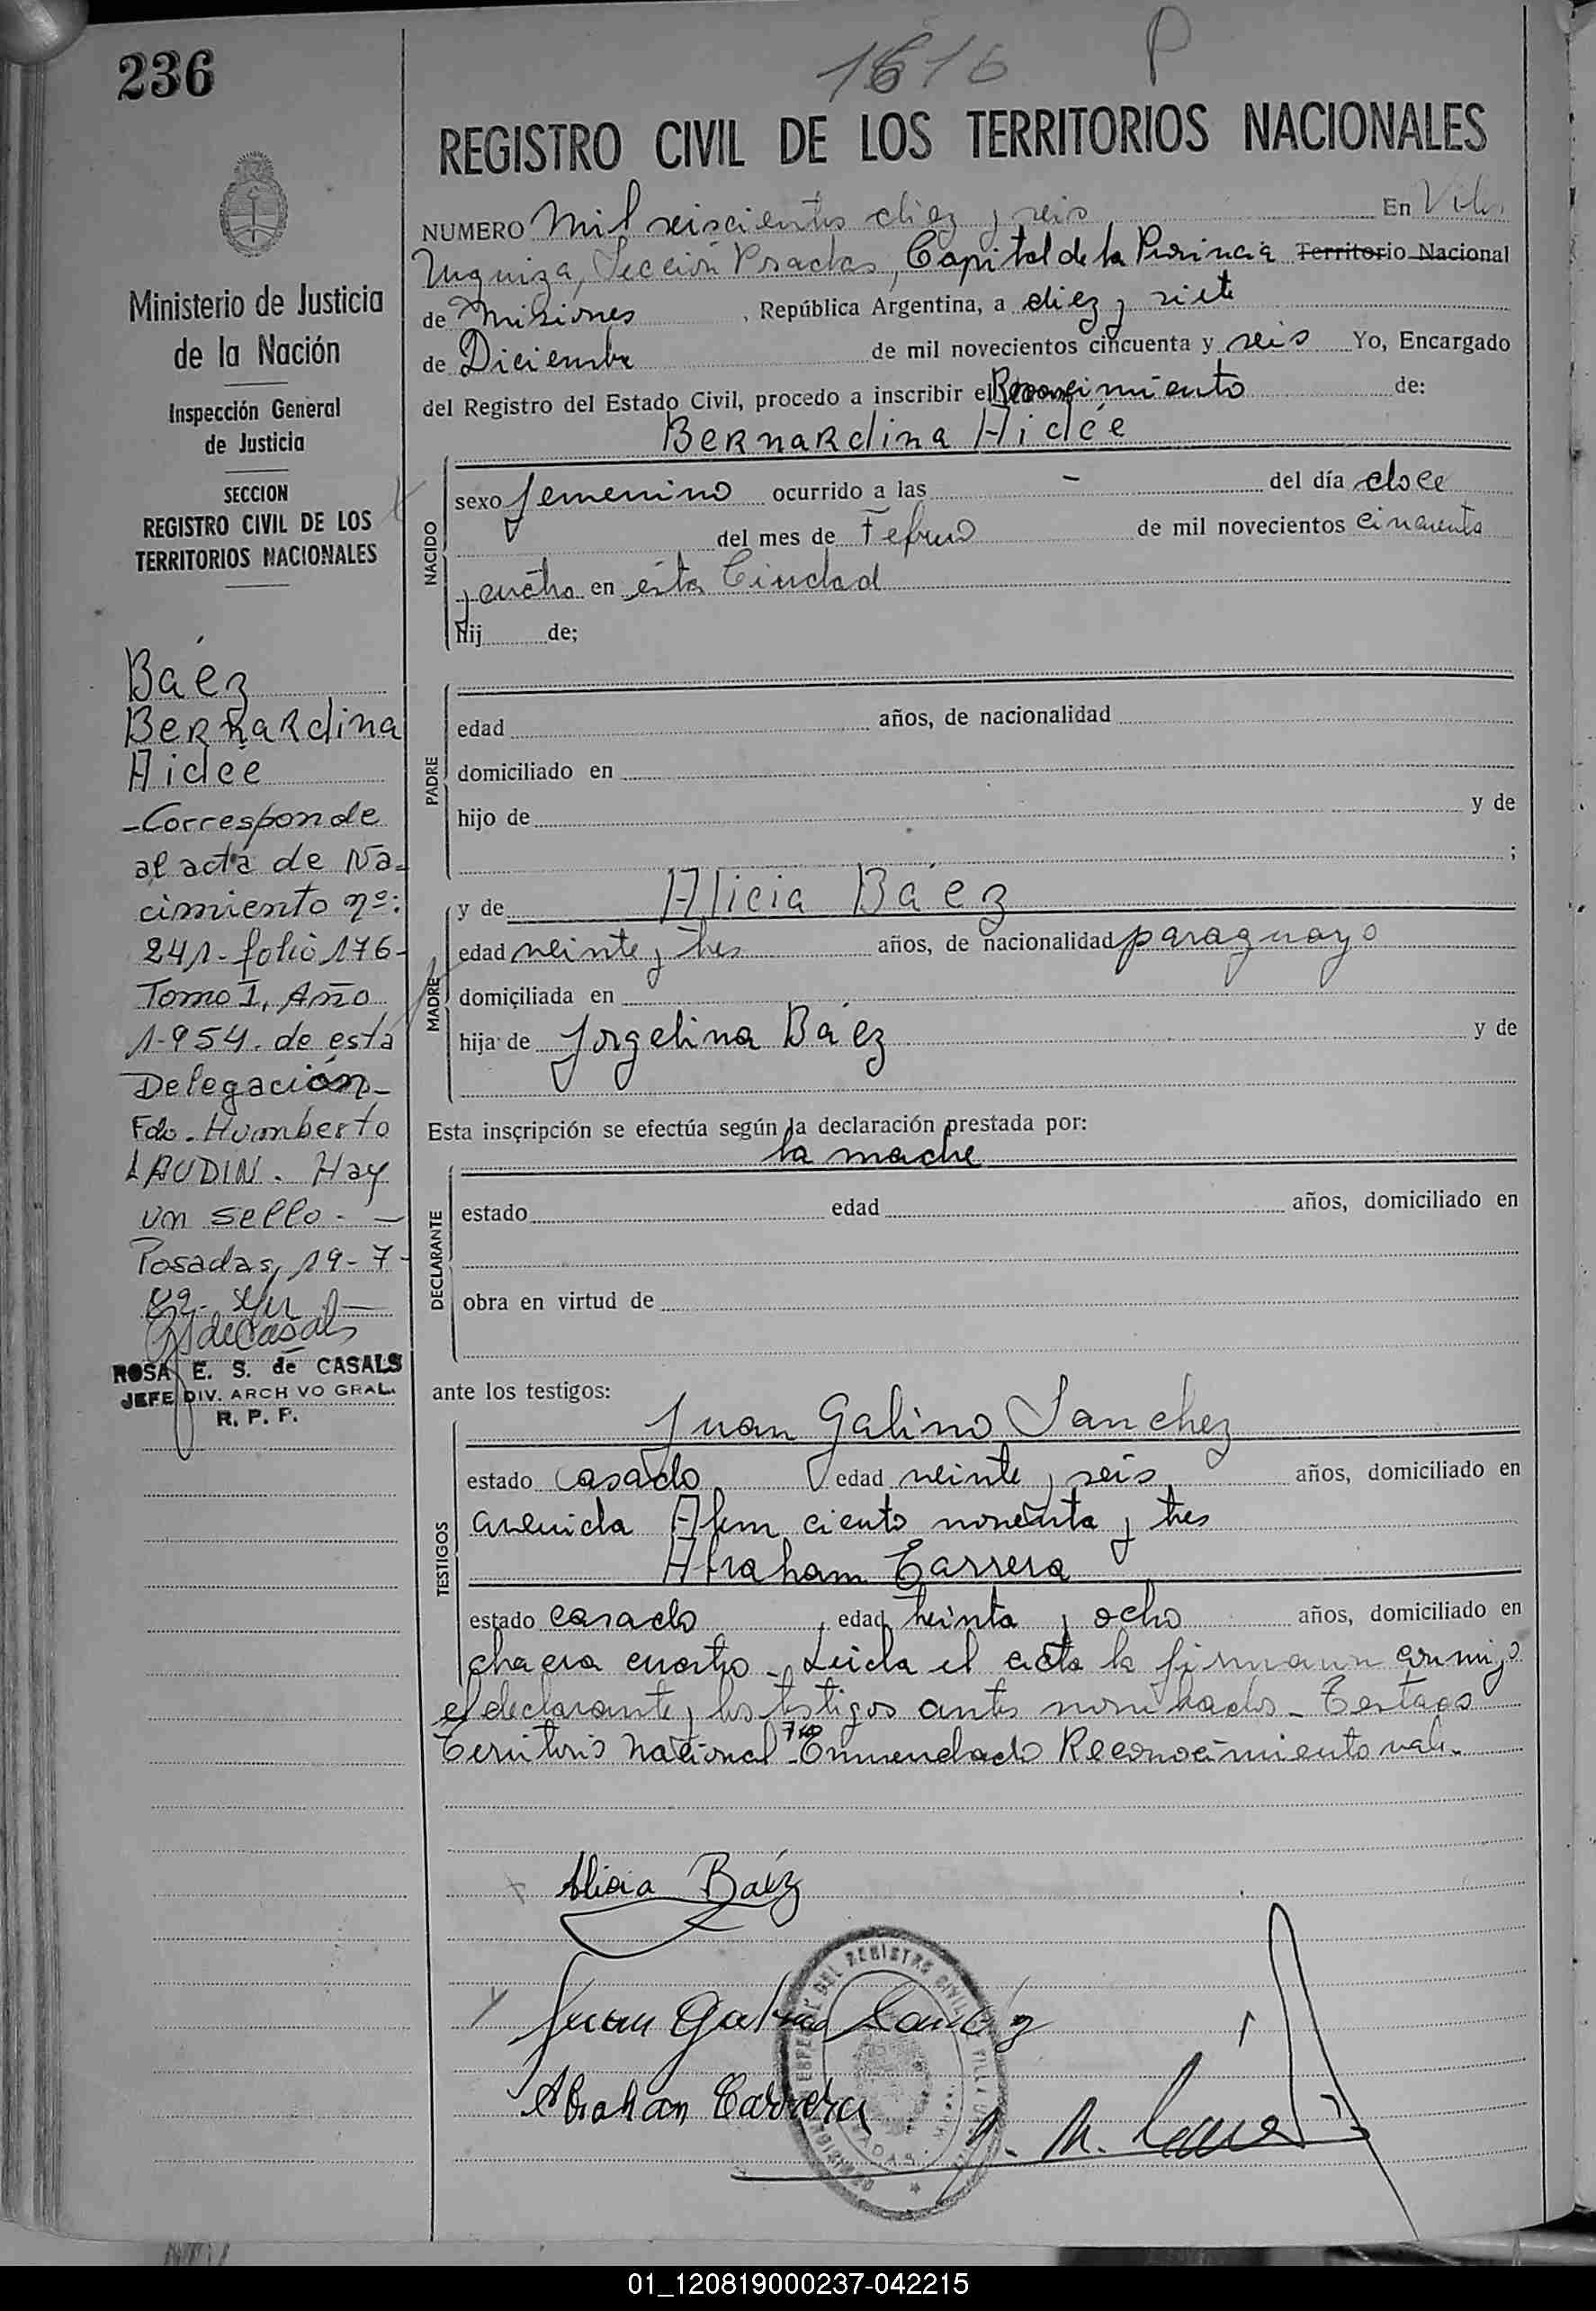 236
1616 P
REGISTRO CIVIL DE LOS TERRITORIOS NACIONALES
NUMERO Mil seiscientos diez y seis En Villa
Urquiza, Sección Posadas, Capital de la Provincia Territorio Nacional
de Misiones, República Argentina, a diez y siete
de Diciembre de mil novecientos cincuenta y seis Yo, Encargado
del Registro del Estado Civil, procedo a inscribir el Reconocimiento de:
Bernardina Aidée
NACIDO
sexo femenino ocurrido a las - del día doce
del mes de Febrero de mil novecientos cincuenta
y cuatro en ésta Ciudad
hij de;
PADRE
edad años, de nacionalidad
domiciliado en
hijo de y de
;
MADRE
y de Alicia Báez
edad veinte y tres años, de nacionalidad paraguayo
domiciliada en
hija de Jorgelina Báez y de
Esta inscripción se efectúa según la declaración prestada por:
la madre
DECLARANTE
estado edad años, domiciliado en
obra en virtud de
ante los testigos:
TESTIGOS
Juan Galino Sanchez
estado casado edad veinte y seis años, domiciliado en
avenida Alem ciento noventa y tres
Abraham Carrera
estado casado, edad treinta y ocho años, domiciliado en
chacra cuatro - Leida el acta la firman conmigo
el declarante y los testigos antes nombrados - Testado
Territorio Nacional - Enmendado Reconocimiento vale.
Alicia Baéz
Juan Galino Sanchez
Abrahan Carrera
Ministerio de Justicia
de la Nación
Inspección General
de Justicia
SECCION
REGISTRO CIVIL DE LOS
TERRITORIOS NACIONALES
Báez
Bernardina
Aidée
-Corresponde
al acta de Na-
cimiento nº:
241- folio 176-
Tomo I, Año
1.954. de esta
Delegación-
Fdo. Humberto
LAUDIN. Hay
un sello. -
Posadas, 19-7-
ROSA E. S. de CASALS
JEFE DIV. ARCHIVO GRAL.
R. P. P.
01_120819000237-042215